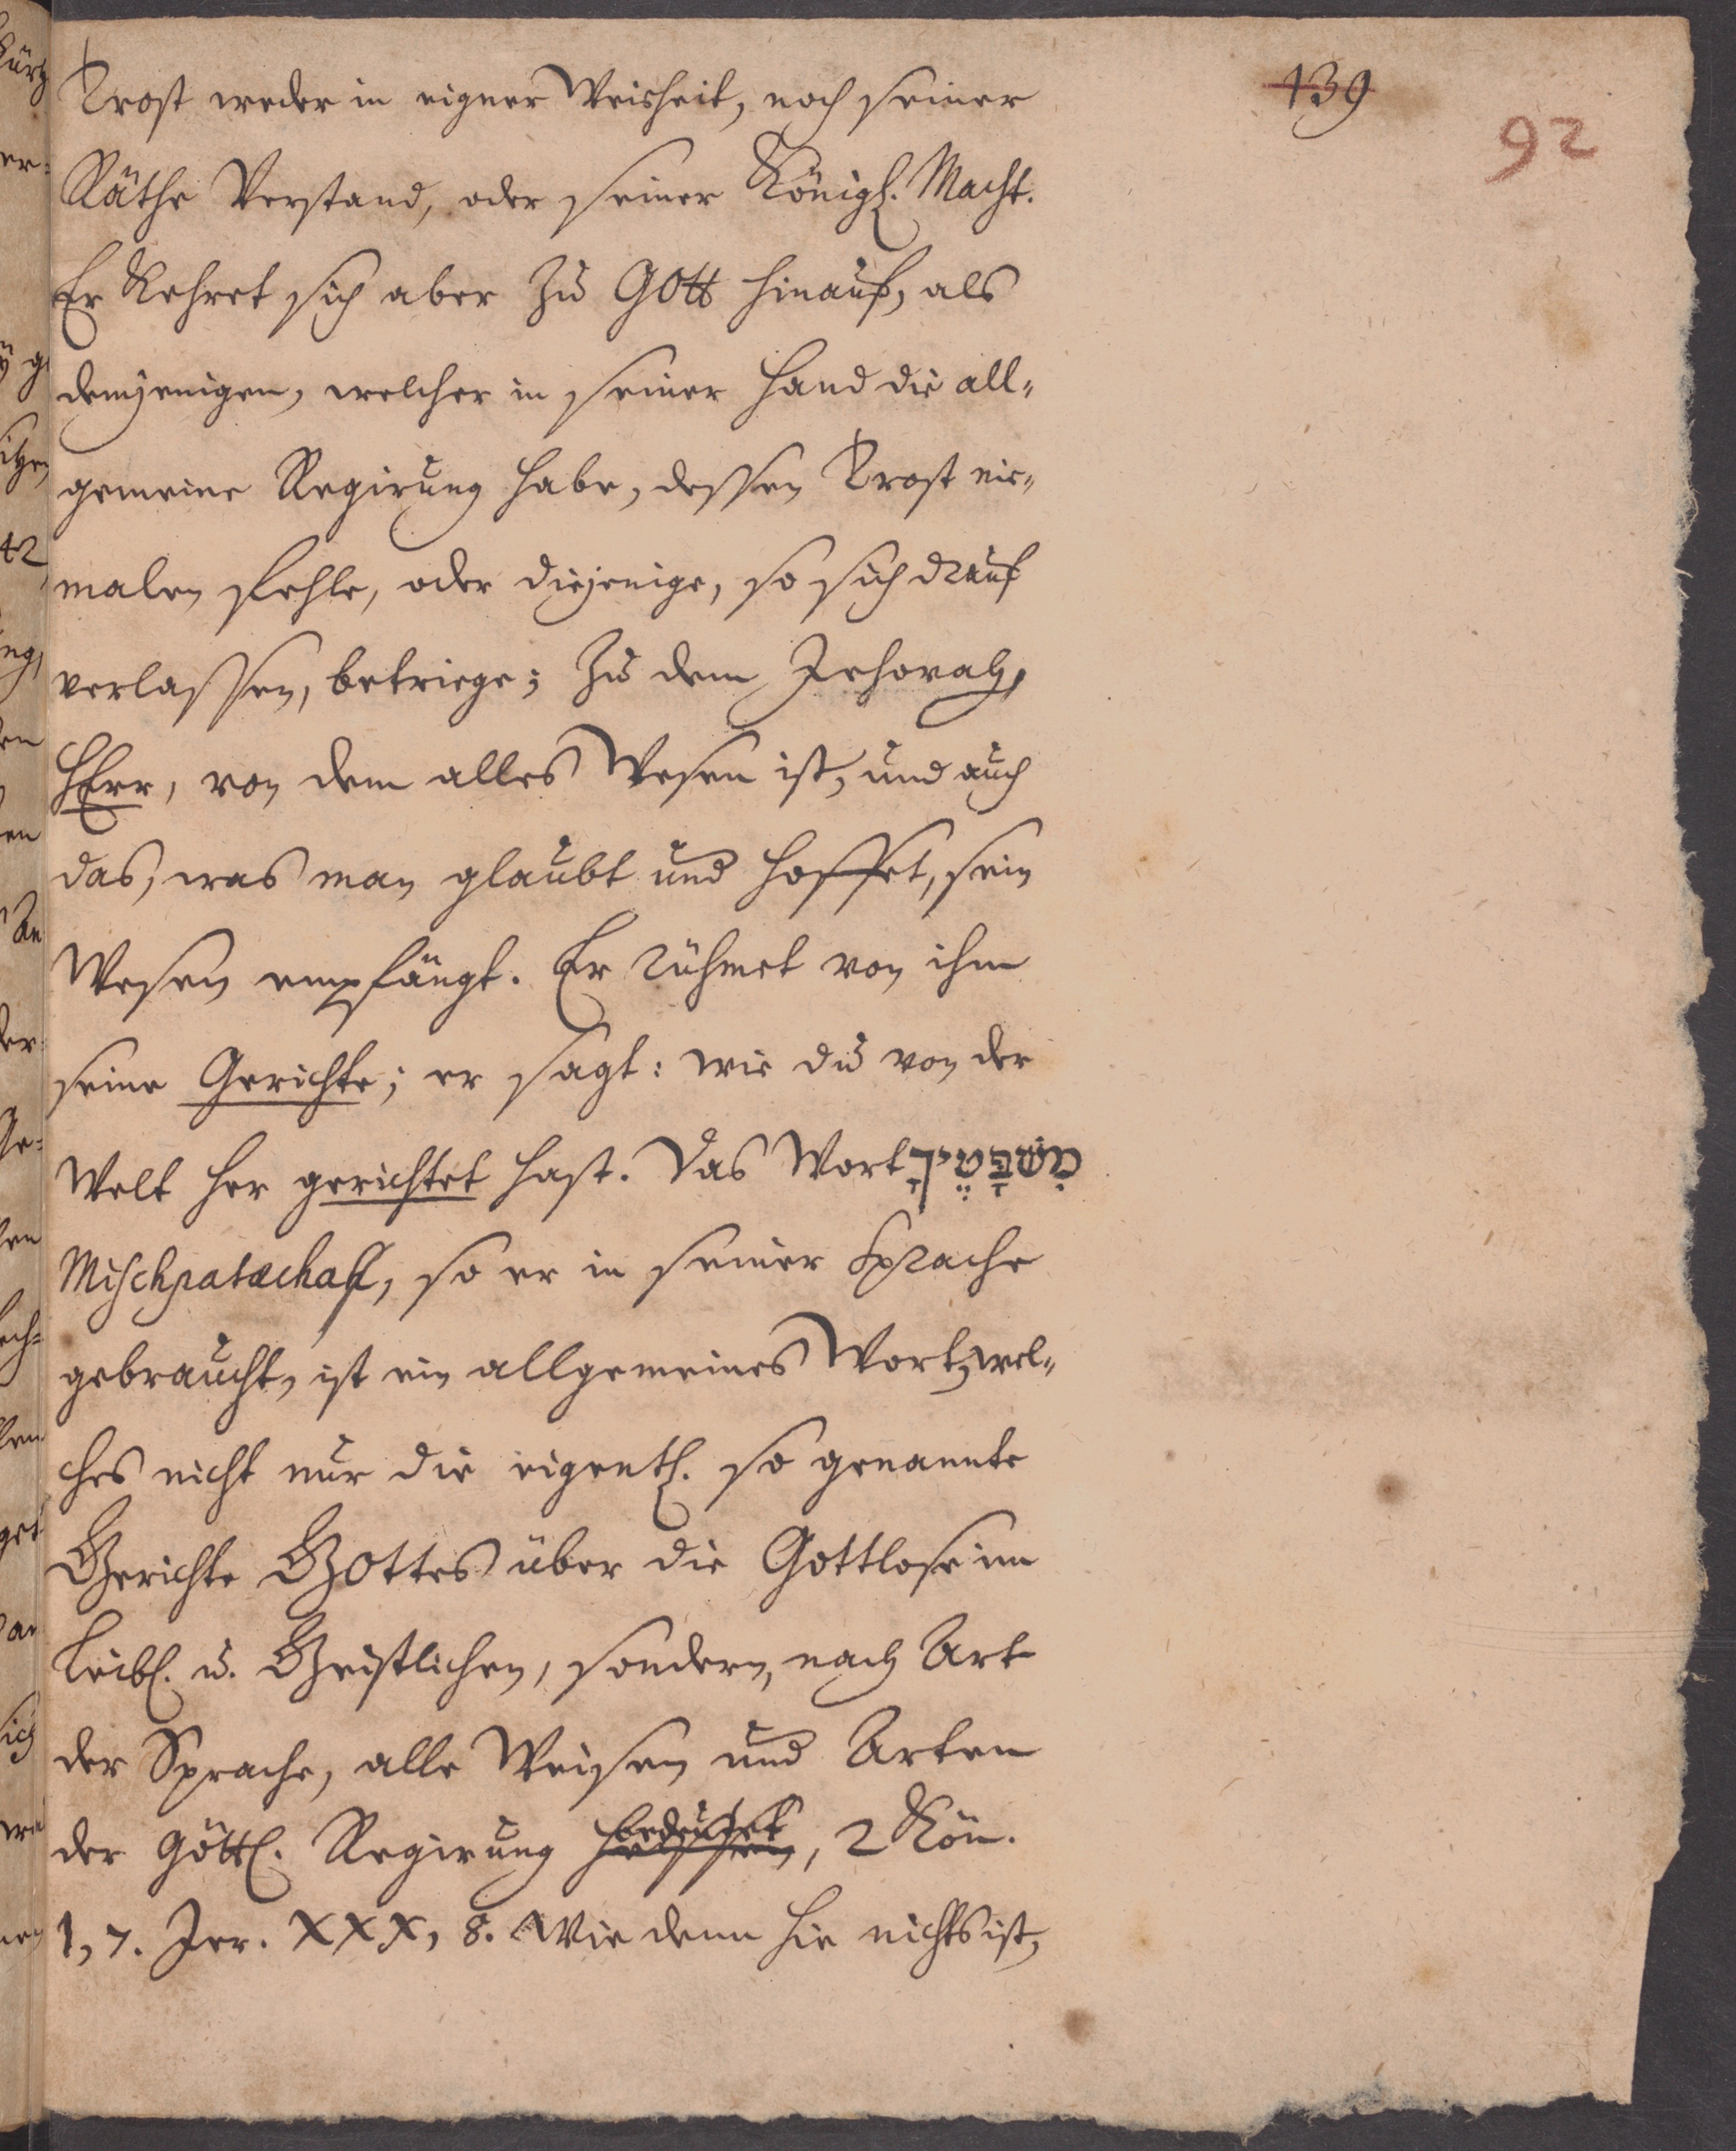 139
92
Trost weder in eigner Weisheit, noch seiner
Räthe Verstand, oder seiner Königl. Macht.
Er Kehret sich aber zu GOtt hinauf, als
demjenigen, welcher in seiner Hand die all-
gemeine Regirung habe, dessen Trost nie-
malen fehle, oder diejenige, so sich drauf
verlassen, betriege; zu dem Jehovah,
HErr, von dem alles Wesen ist, und auch
das, was man glaubt und hoffet, sein
Wesen empfängt. Er rühmet von ihm
seine Gerichte; er sagt: wie du von der
Welt her gerichtet hast. Das Wort מִשְׁפָּטֶיךָ
Mischpatæcha, so er in seiner Sprache
gebraucht, ist ein allgemeines Wort, wel-
ches nicht nur die eigentl. so genannte
Gerichte GOttes über die Gottlose im
Leibl. u. Geistlichen, sondern, nach Art
der Sprache, alle Weisen und Arten
der Göttl. Regirung bedeutet, 2 Kön.
1, 7. Jer. XXX, 8. Wie denn hie nichts ist,